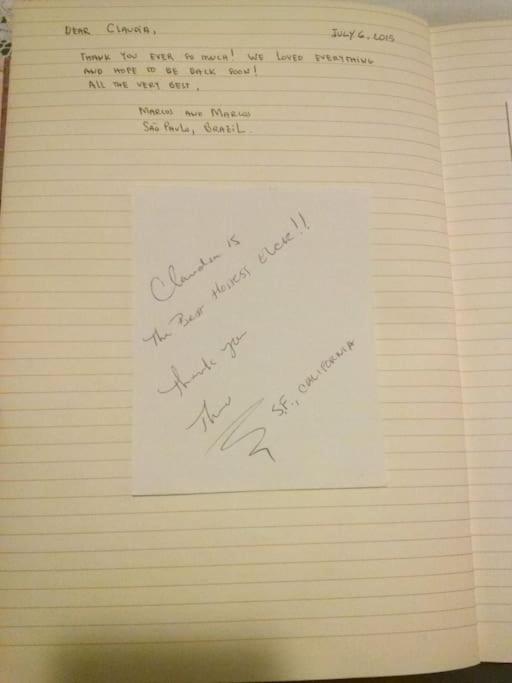 DEAR CLAUDIA,
JULY 6, 2015
THANK YOU EVER SO MUCH! WE LOVED EVERYTHING
AND HOPE TO BE BACK SOON!
ALL THE VERY BEST,
MARCOS AND MARCUS
SÃO PAULO, BRAZIL.
Claudia is
The Best Hostess Ever!!
Thank you
S.F., CALIFORNIA